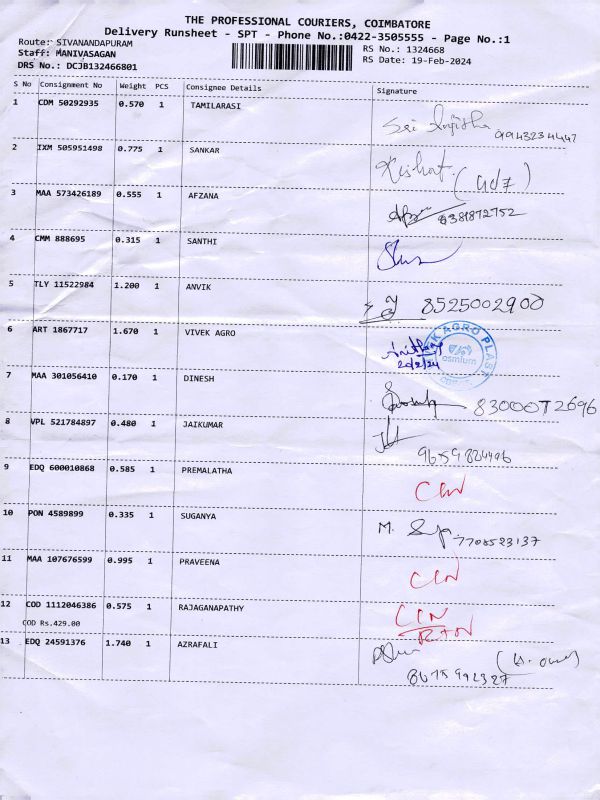 THE PROFESSIONAL COURIERS, COIMBATORE
Delivery Runsheet - SPT - Phone No.:0422-3505555 - Page No.:1
Route: SIVANANDAPURAM
RS No.: 1324668
Staff: MANIVASAGAN
RS Date: 19-Feb-2024
DRS No.: DCJB132466801
S No Consignment No Weight PCS Consignee Details Signature
1 CDM 50292935 0.570 1 TAMILARASI
2 IXM 505951498 0.775 1 SANKAR
3 MAA 573426189 0.555 1 AFZANA
4 CMM 888695 0.315 1 SANTHI
5 TLY 11522984 1.200 1 ANVIK
8525002900
6 ART 1867717 1.670 1 VIVEK AGRO
20/2/24
AGRO PLAST
osmium
7 MAA 301056410 0.170 1 DINESH
8300072696
8 VPL 521784897 0.480 1 JAIKUMAR
9 EDQ 600010868 0.585 1 PREMALATHA
10 PON 4589899 0.335 1 SUGANYA
M.
7708523137
11 MAA 107676599 0.995 1 PRAVEENA
CIN
12 COD 1112046386 0.575 1 RAJAGANAPATHY
CIN
COD Rs.429.00
RTN
13 EDQ 24591376 1.740 1 AZRAFALI